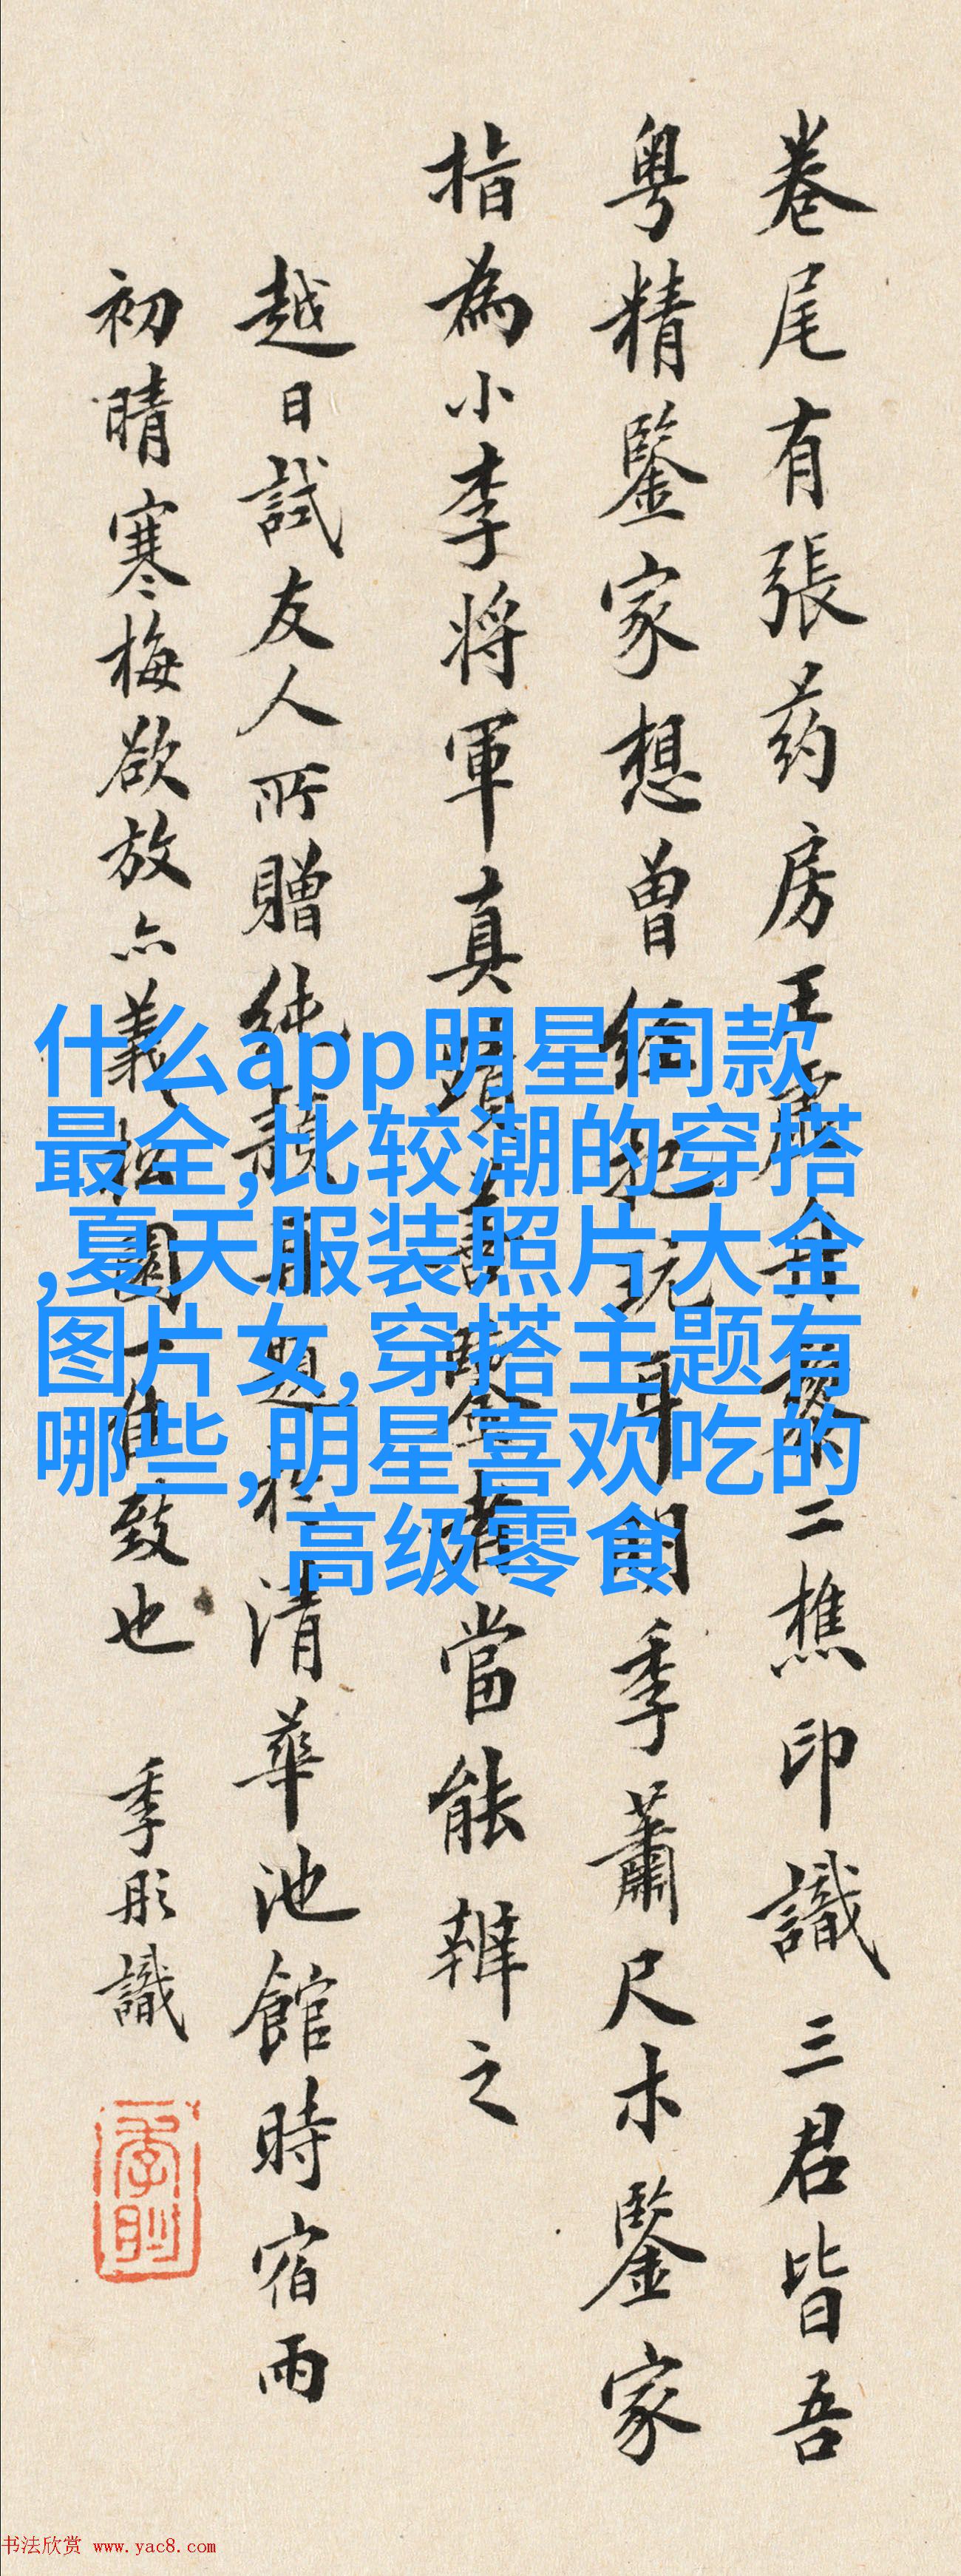 卷尾有張药房王
二樵印識三君皆吾
粤精鑒家想曾
耳關季蕭尺木鑒家
指為小李将軍真
當能辨之
越日試友人所贈純
清華池館時宿雨
初晴寒梅欲放亦義
致也
季彤識
什么app明星同款
最全,比较潮的穿搭
,夏天服装照片大全
图片女,穿搭主题有
哪些,明星喜欢吃的
高级零食
书法欣赏 www.yac8.com